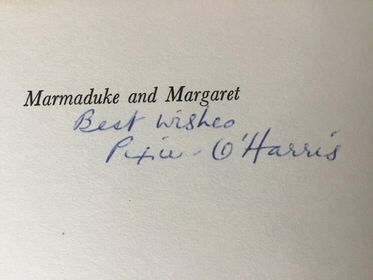 Marmaduke and Margaret
Best wishes
Pixie O'Harris